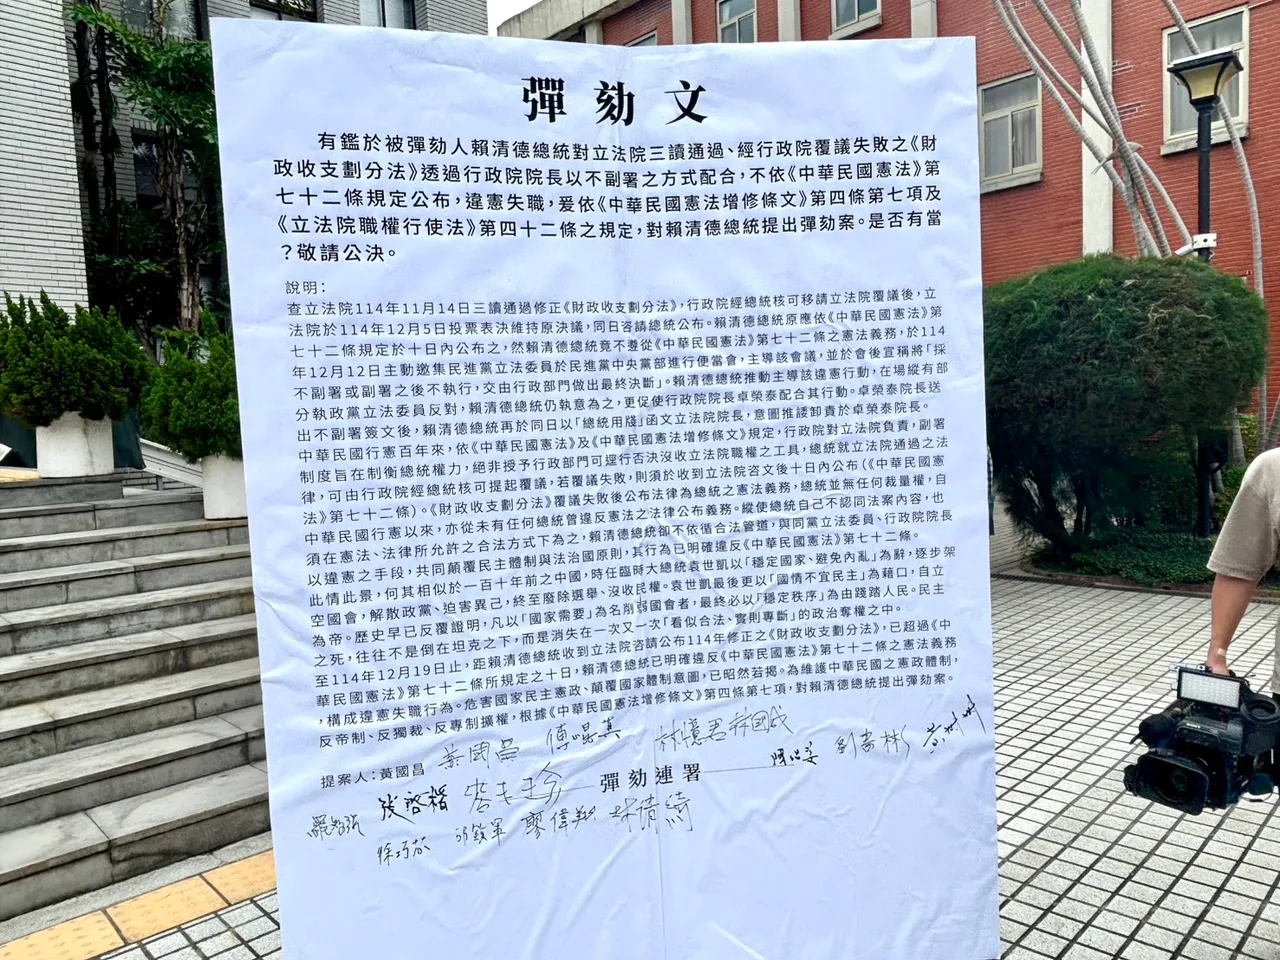 彈劾文
有鑑於被彈劾人賴清德總統對立法院三讀通過、經行政院覆議失敗之《財
政收支劃分法》透過行政院院長以不副署之方式配合，不依《中華民國憲法》第
七十二條規定公布，違憲失職，爰依《中華民國憲法增修條文》第四條第七項及
《立法院職權行使法》第四十二條之規定，對賴清德總統提出彈劾案。是否有當
？敬請公決。
說明：
查立法院114年11月14日三讀通過修正《財政收支劃分法》，行政院經總統核可移請立法院覆議後，立
法院於114年12月5日投票表決維持原決議，同日咨請總統公布。賴清德總統原應依《中華民國憲法》第
七十二條規定於十日內公布之，然賴清德總統竟不遵從《中華民國憲法》第七十二條之憲法義務，於114
年12月12日主動邀集民進黨立法委員於民進黨中央黨部進行便當會，主導該會議，並於會後宣稱將「採
不副署或副署之後不執行，交由行政部門做出最終決斷」。賴清德總統推動主導該違憲行動，在場縱有部
分執政黨立法委員反對，賴清德總統仍執意為之，更促使行政院院長卓榮泰配合其行動。卓榮泰院長送
出不副署簽文後，賴清德總統再於同日以「總統用牋」函文立法院院長，意圖推諉卸責於卓榮泰院長。
中華民國行憲百年來，依《中華民國憲法》及《中華民國憲法增修條文》規定，行政院對立法院負責，副署
制度旨在制衡總統權力，絕非授予行政部門可逕行否決沒收立法院職權之工具，總統就立法院通過之法
律，可由行政院經總統核可提起覆議，若覆議失敗，則須於收到立法院咨文後十日內公布（《中華民國憲
法》第七十二條）。《財政收支劃分法》覆議失敗後公布法律為總統之憲法義務，總統並無任何裁量權，自
中華民國行憲以來，亦從未有任何總統曾違反憲法之法律公布義務。縱使總統自己不認同法案內容，也
須在憲法、法律所允許之合法方式下為之，賴清德總統卻不依循合法管道，與同黨立法委員、行政院院長
以違憲之手段，共同顛覆民主體制與法治國原則，其行為已明確違反《中華民國憲法》第七十二條。
此情此景，何其相似於一百十年前之中國，時任臨時大總統袁世凱以「穩定國家、避免內亂」為辭，逐步架
空國會，解散政黨、迫害異己，終至廢除選舉、沒收民權。袁世凱最後更以「國情不宜民主」為藉口，自立
為帝。歷史早已反覆證明，凡以「國家需要」為名削弱國會者，最終必以「穩定秩序」為由踐踏人民。民主
之死，往往不是倒在坦克之下，而是消失在一次又一次「看似合法、實則專斷」的政治奪權之中。
至114年12月19日止，距賴清德總統收到立法院咨請公布114年修正之《財政收支劃分法》，已超過《中
華民國憲法》第七十二條所規定之十日，賴清德總統已明確違反《中華民國憲法》第七十二條之憲法義務
，構成違憲失職行為。危害國家民主憲政、顛覆國家體制意圖，已昭然若揭。為維護中華民國之憲政體制，
反帝制、反獨裁、反專制擴權，根據《中華民國憲法增修條文》第四條第七項，對賴清德總統提出彈劾案。
提案人：黃國昌 黃國昌 傅崐萁 林憶君 林國成
彈劾連署 陳昭姿 劉書彬
羅智強 張啓楷 麥玉珍
徐巧芯 邱鎮軍 廖偉翔 林倩綺